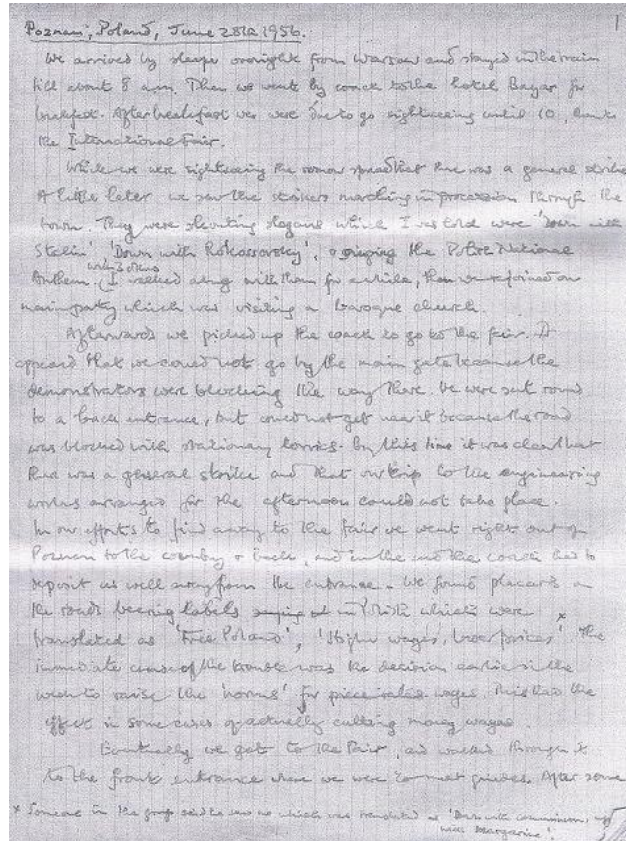 1
Poznan, Poland, June 28th 1956.
We arrived by sleeper overnight from Warsaw and stayed in the train
till about 8 am. Then we went by coach to the hotel Bazar for
breakfast. After breakfast we were due to go sightseeing until 10,
the International Fair.
While we were sightseeing the rumour spread that there was a general strike
A little later we saw the strikers marching in procession through the
town. They were shouting slogans which I was told were 'Down with
Stalin' 'Down with Rokossovsky', singing the Polish National
Anthem. I walked along with them for a while, then we rejoined our
main party which was visiting a baroque church.
Afterwards we picked up the coach to go to the fair. It
appeared that we could not go by the main gate because the
demonstrators were blocking the way there. We were sent round
to a back entrance, but could not get near it because the road
was blocked with stationary lorries. By this time it was clear that
there was a general strike and that our trip to the engineering
works arranged for the afternoon could not take place.
In our efforts to find a way to the fair we went right out of
Poznan to the country & back, and in the end the coach had to
deposit us well away from the entrance. We found placards on
the roads bearing labels in Polish which were
translated as 'Free Poland', 'Higher wages, lower prices,' x The
immediate cause of the trouble was the decision earlier in the
week to raise the 'norms' for piece rates wages. This had the
effect in some cases of actually cutting money wages.
Eventually we got to the Fair, and walked through it
to the front entrance where we were to meet guides. After some
x Someone in the group said he saw which was translated as 'Down with communism, up
with Margarine'.